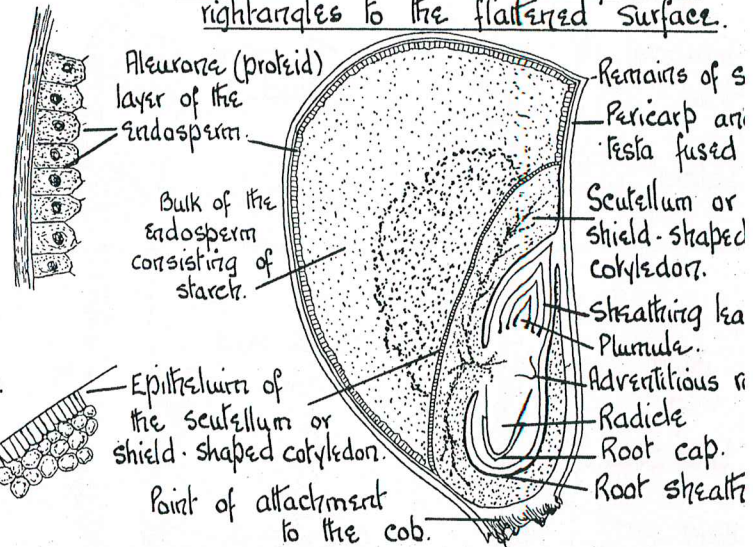 rightangles to the flattened surface.
Aleurone (proteid)
layer of the
endosperm.
Bulk of the
endosperm
consisting of
starch.
Epithelium of
the scutellum or
shield-shaped cotyledon.
Point of attachment
to the cob.
Remains of
Pericarp
testa fused
Scutellum or
shield-shaped
cotyledon.
Sheathing
Plumule.
Adventitious
Radicle
Root cap.
Root sheath